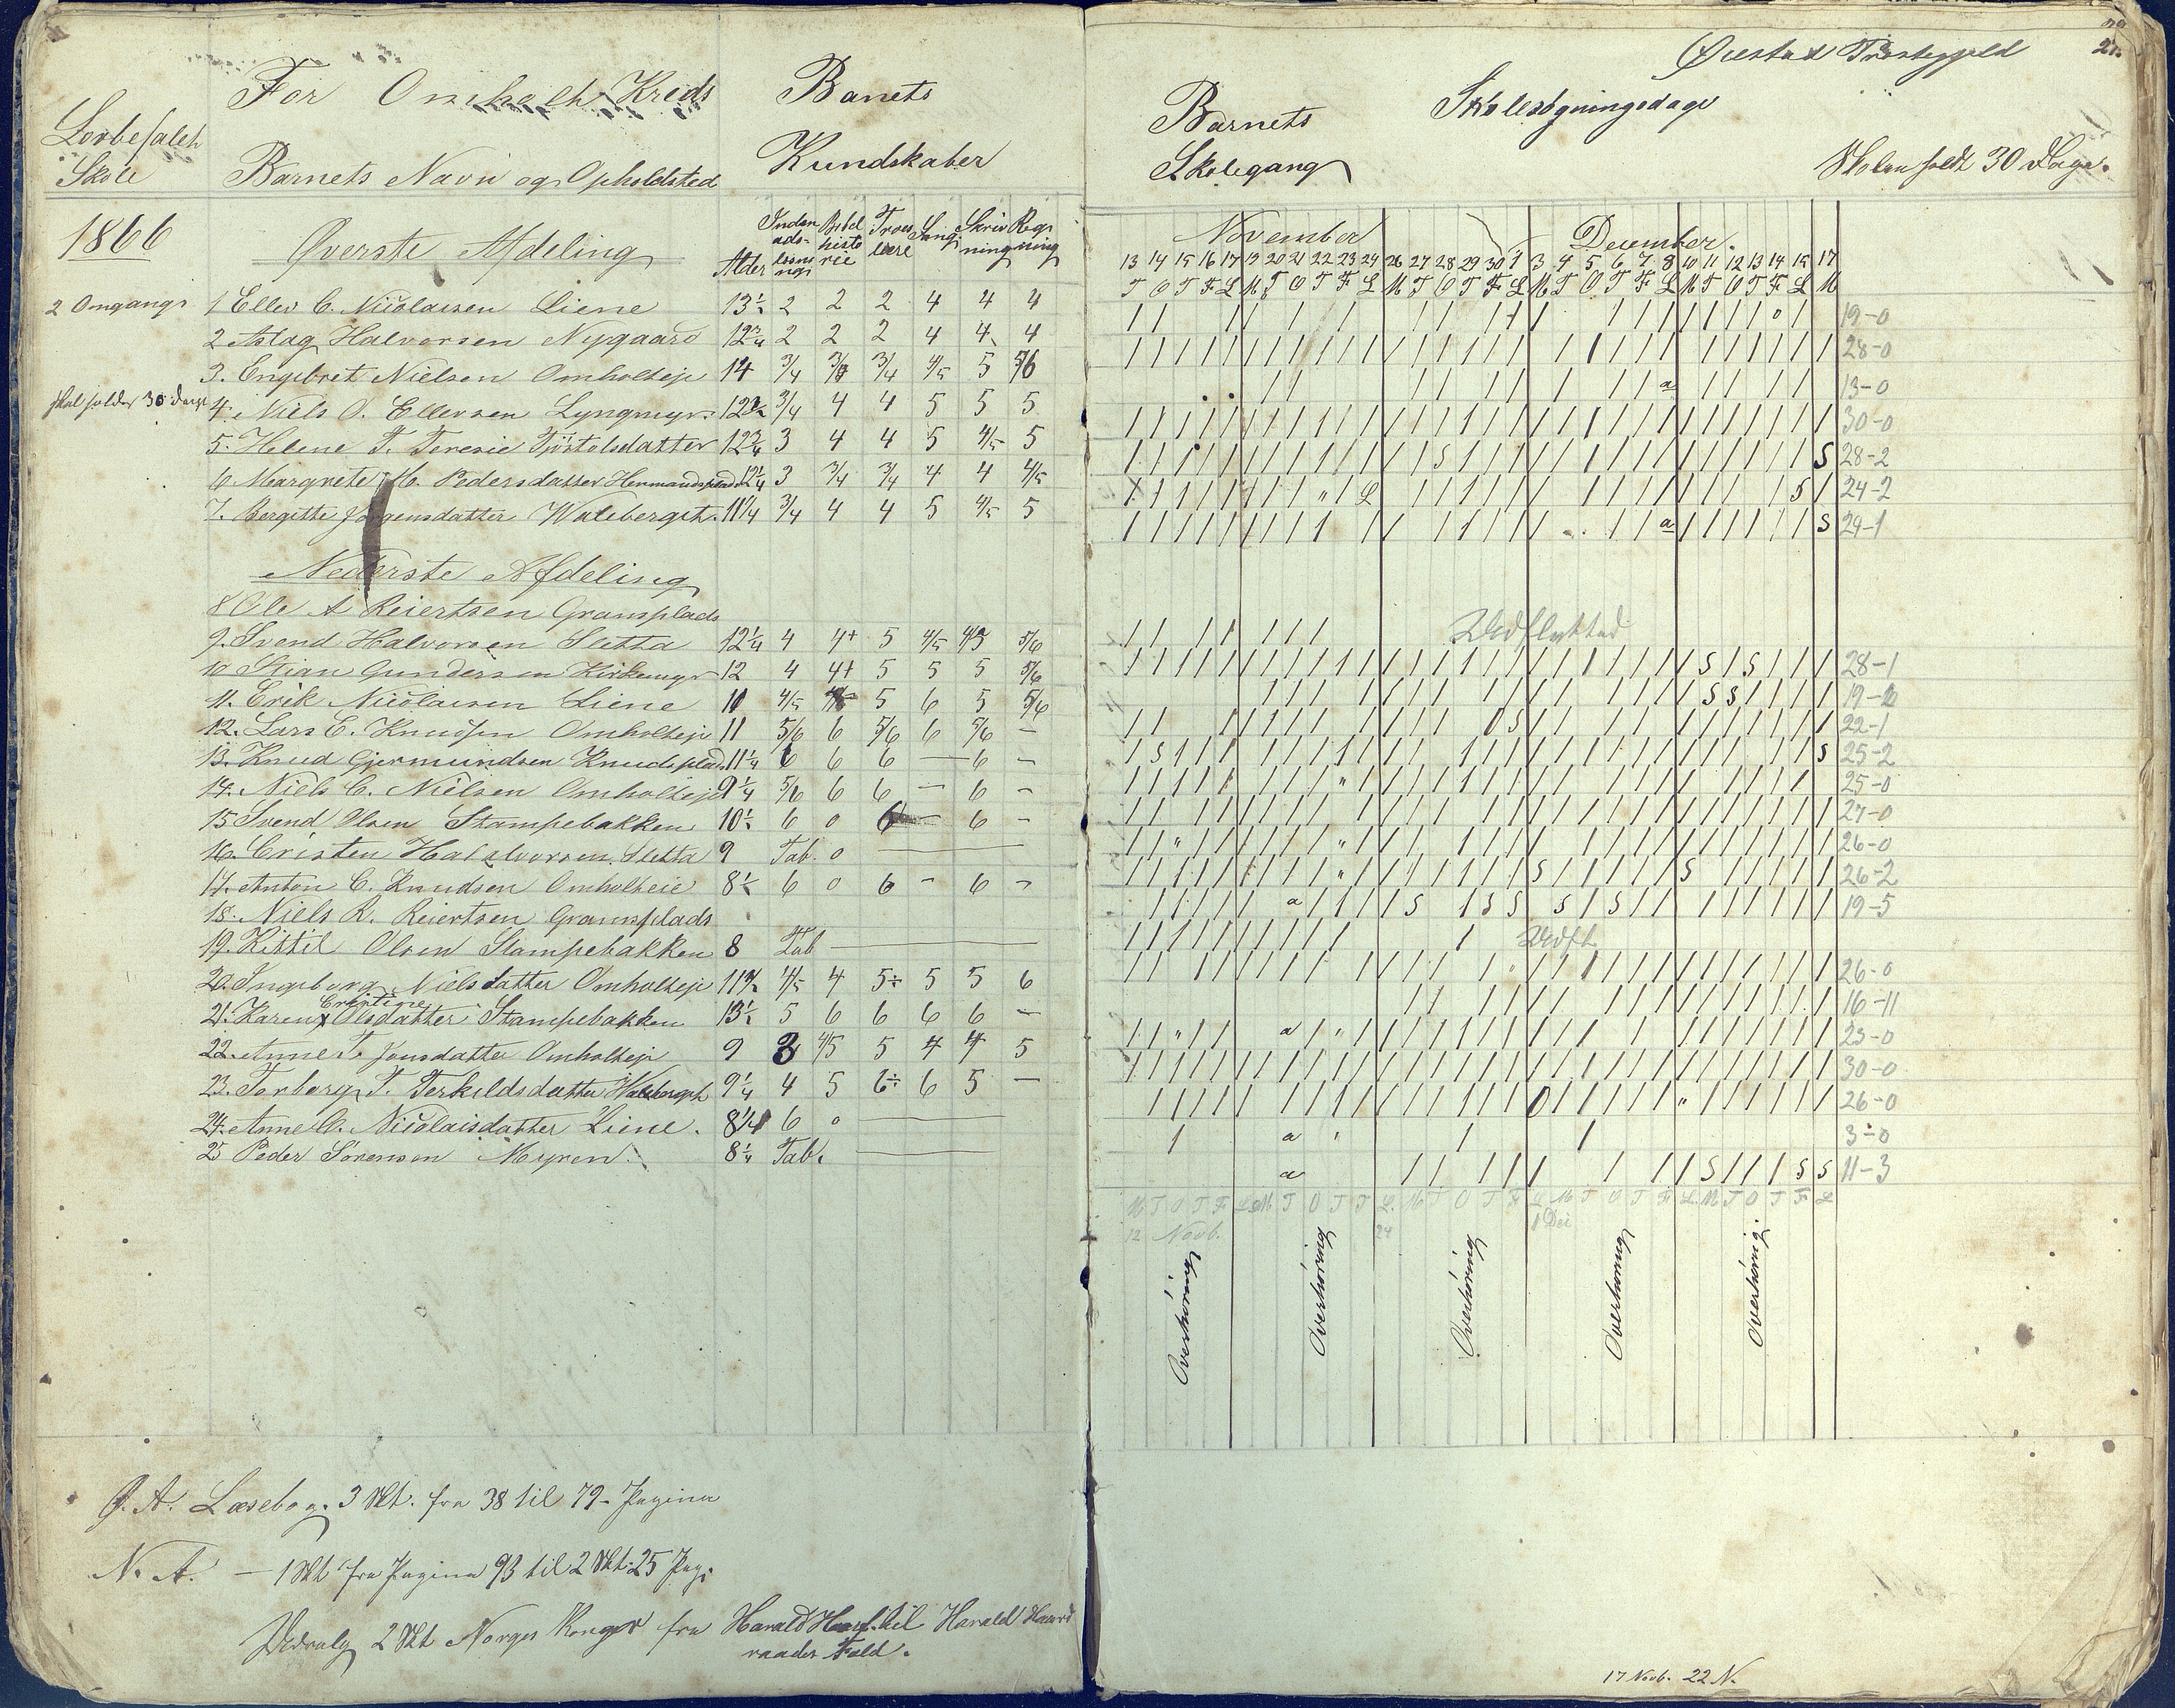 For Omholt Kreds
Lovbefalet
Skole
Barnets Navn og Opholdsted
Barnets
Kundskaber
1866
Øverste Afdeling
Alder Indenads-læsning Bibelhistorie Troeslære Sang Skrivning Regning
2 Omgang 1 Ellev C. Nicolaisen Liene 13½ 2 2 2 4 4 4
2 Aslag Halvorsen Nygaard 12¾ 2 2 2 4 4 4
3. Engebret Nielsen Omholteje 14 3/4 3/4 3/4 4/5 5 5/6
skal holdes 30 dage 4. Niels O. Ellevsen Lyngmyr 12½ 3/4 4 4 5 5 5
5. Helene T. Teresie Tjöstolsdatter 12¾ 3 4 4 5 4/5 5
6 Margrete M. Pedersdatter Hermandsplads 12¼ 3 3/4 3/4 4 4 4/5
7. Bergitte Jørgensdatter Waleberget 11¼ 3/4 4 4 5 4/5 5
Nederste Afdeling
8 Ole A Reiertsen Gramsplads
9. Svend Halvorsen Sletta 12¼ 4 4+ 5 4/5 4/5 5/6
10 Stian Gundersen Kirkemyr 12 4 4+ 5 5 5 5/6
11. Erik Nicolaisen Liene 11 4/5 4/5 5 6 5 5/6
12. Lars E. Knudsen Omholteje 11 5/6 6 5/6 6 5/6 —
13. Knud Gjermundsen Knudsplads 11¼ 6 6 6 — 6 —
14. Niels C. Nielsen Omholteje 9¼ 5/6 6 6 — 6 —
15 Svend Olsen Stampebakken 10½ 6 0 6 — 6 —
16. Cristen Halvorsen Sletta 9 Tab. 0 —
17. Anton C. Knudsen Omholteie 8½ 6 0 6 — 6 —
18. Niels R. Reiertsen Gramsplads
19. Kittil Olsen Stampebakken 8 Tab —
20. Ingeborg Nielsdatter Omholteje 11¾ 4/5 4 5÷ 5 5 6
Cristine
21. Karen x Olsdatter Stampebakken 13½ 5 6 6 6 6 —
22. Anne T. Jensdatter Omholteje 9 3 4/5 5 4 4 5
23. Torborg T. Terkildsdatter Waleberget 9¼ 4 5 6÷ 6 5 —
24. Anne C. Nicolaisdatter Liene. 8¼ 6 0 —
25 Peder Sörensen Myren 8¼ Tab. —
Ø. A. Læsebog. 3 Skt. fra 38 til 79. Pagina
N. A. — 1 Skt fra Pagina 93 til 2 Skt. 25 Pag.
2 Skt Norges Konger fra Harald Haarf. til Harald Haard
raades Fald.
Øiestad Præstegjeld
21.
Barnets
Skolegang
Skolesøgningsdage
Skolen holdt 30 Dage.
November December.
13 14 15 16 17 19 20 21 22 23 24 26 27 28 29 30 1 3 4 5 6 7 8 10 11 12 13 14 15 17
T O T F L M T O T F L M T O T F L M T O T F L M T O T F L M
19-0
28-0
13-0
30-0
28-2
24-2
24-1
Udflyttad
28-1
19-2
22-1
25-2
25-0
27-0
26-0
26-2
19-5
Udfl.
26-0
16-11
23-0
30-0
26-0
3-0
11-3
12 Novb. 24 1 Dec
Overhøring Overhøring Overhøring Overhøring Overhøring
17 Novb. 22 N.